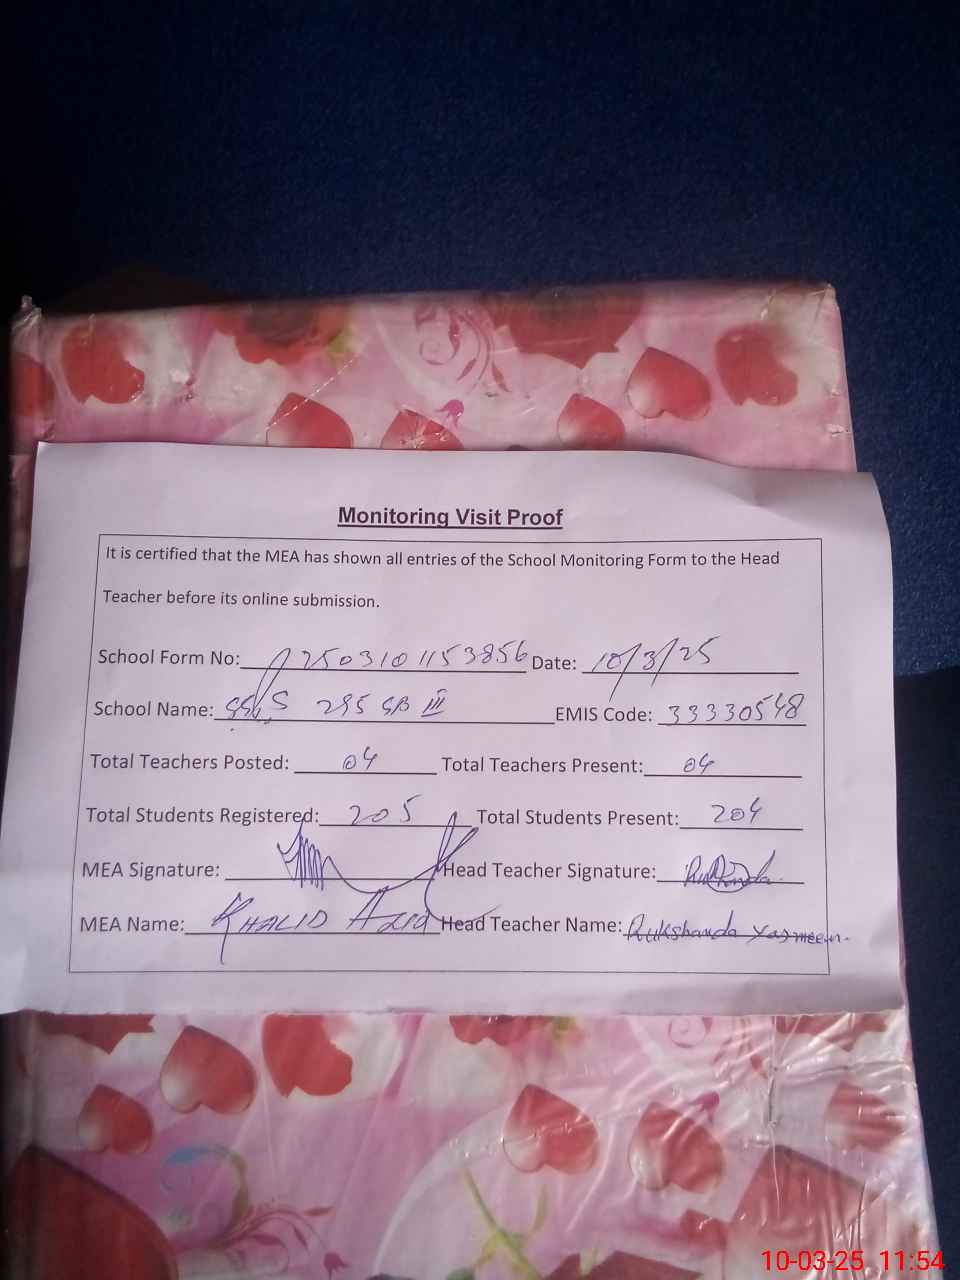 Monitoring Visit Proof
It is certified that the MEA has shown all entries of the School Monitoring Form to the Head
Teacher before its online submission.
School Form No: 2503101153856 Date: 10/3/25
School Name: 295 GB III EMIS Code: 33330548
Total Teachers Posted: 04 Total Teachers Present: 04
Total Students Registered: 205 Total Students Present: 204
MEA Signature: Head Teacher Signature:
MEA Name: KHALID Head Teacher Name: Rukshanda Yasmeen.
10-03-25 11:54